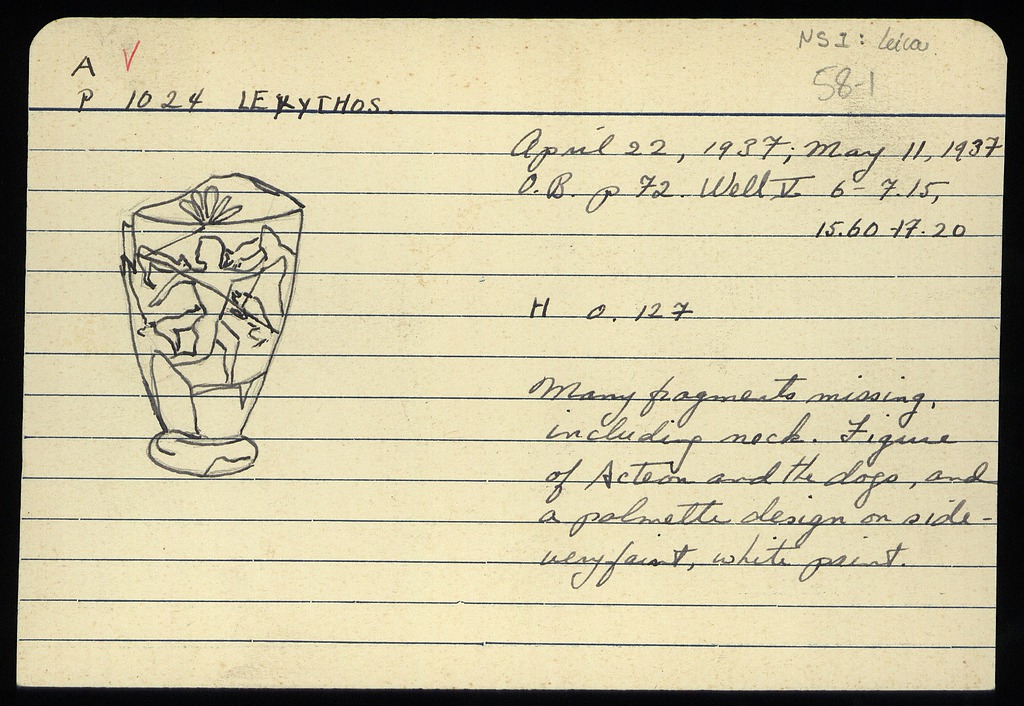 NSI: Leica
58-1
A V
P 1024 LEKYTHOS.
April 22, 1937; May 11, 1937
O.B. p 72. Well V 6 - 7.15,
15.60 - 17.20
H 0.127
Many fragments missing,
including neck. Figure
of Acteon and the dogs, and
a palmette design on side -
very faint, white paint.